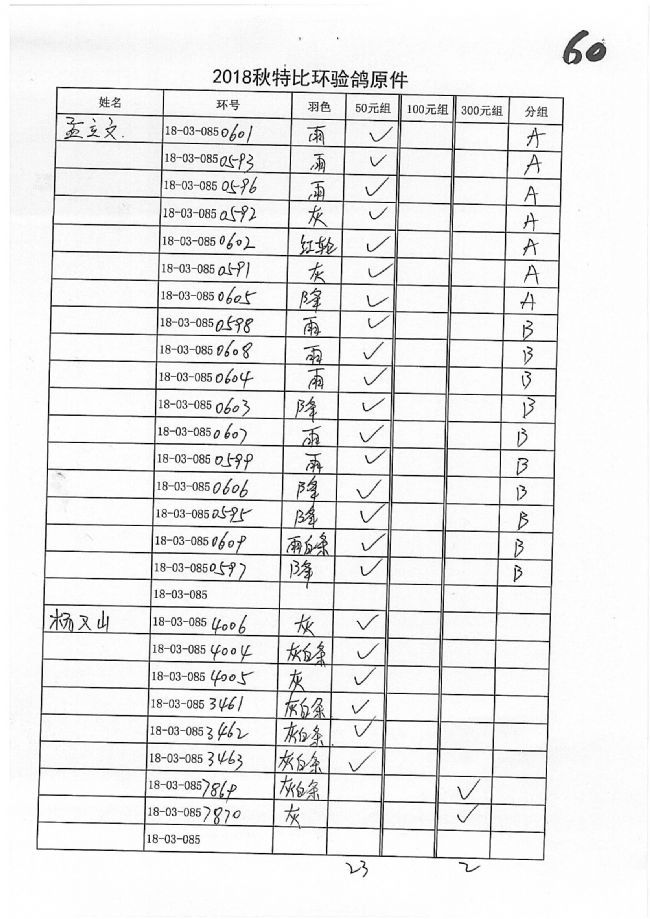 60
2018秋特比环验鸽原件
姓名 环号 羽色 50元组 100元组 300元组 分组
孟立文. 18-03-085 0601 雨 ✓ A
18-03-085 0593 雨 ✓ A
18-03-085 0596 雨 ✓ A
18-03-085 0592 灰 ✓ A
18-03-085 0602 红轮 ✓ A
18-03-085 0591 灰 ✓ A
18-03-085 0605 降 ✓ A
18-03-085 0598 雨 ✓ B
18-03-085 0608 雨 ✓ B
18-03-085 0604 雨 ✓ B
18-03-085 0603 降 ✓ B
18-03-085 0607 雨 ✓ B
18-03-085 0599 雨 ✓ B
18-03-085 0606 降 ✓ B
18-03-085 0595 降 ✓ B
18-03-085 0609 雨白条 ✓ B
18-03-085 0597 降 ✓ B
18-03-085
杨又山 18-03-085 4006 灰 ✓
18-03-085 4004 灰白条 ✓
18-03-085 4005 灰 ✓
18-03-085 3461 灰白条 ✓
18-03-085 3462 灰白条 ✓
18-03-085 3463 灰白条 ✓
18-03-085 7869 灰白条 ✓
18-03-085 7870 灰 ✓
18-03-085
23 2